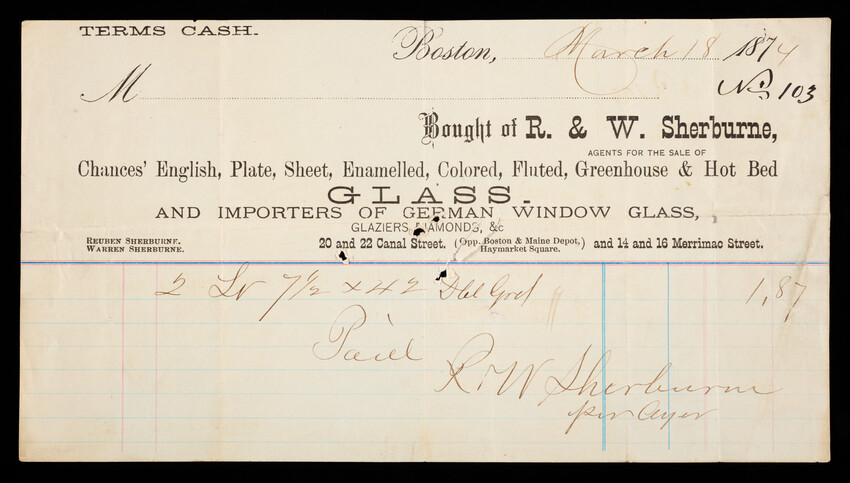 TERMS CASH.
Boston, March 18 1874
No. 103
M
Bought of R. & W. Sherburne,
AGENTS FOR THE SALE OF
Chances' English, Plate, Sheet, Enamelled, Colored, Fluted, Greenhouse & Hot Bed
GLASS.
AND IMPORTERS OF GERMAN WINDOW GLASS,
GLAZIERS DIAMONDS, &c
REUBEN SHERBURNE.
WARREN SHERBURNE.
20 and 22 Canal Street. (Opp. Boston & Maine Depot, Haymarket Square.) and 14 and 16 Merrimac Street.
2 7 1/2 x 42 Dbl 1,87
Paid
R & W Sherburne
per Ayer